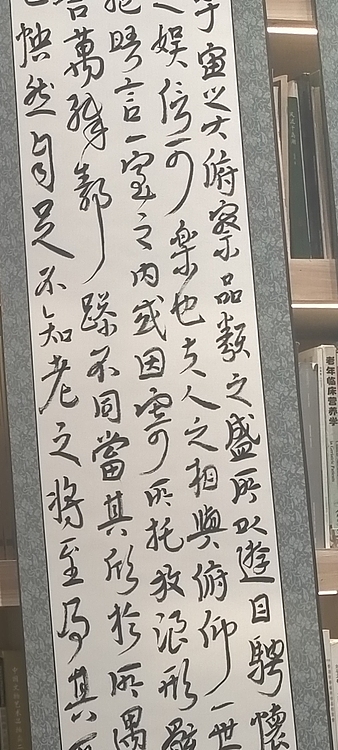 宇宙之大俯察品類之盛所以遊目騁懷
娛信可樂也夫人之相與俯仰一世
抱晤言一室之内或因寄所托放浪形骸
萬殊靜躁不同當其欣於所遇
怏然自足不知老之將至及其所
老年临床营养学